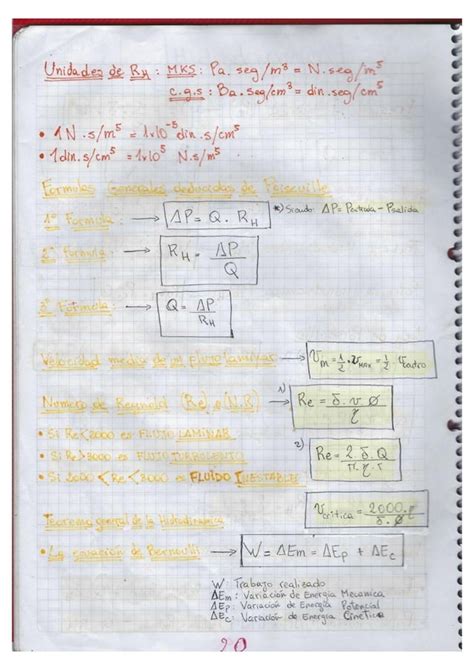 Unidades de RH : MKS : Pa.seg/m³ = N.seg/m⁵
c.g.s : Ba.seg/cm³ = din.seg/cm⁵
• 1N.s/m⁵ = 1x10⁻⁵ din.s/cm⁵
• 1din.s/cm⁵ = 1x10⁵ N.s/m⁵
Formulas Generales deducidas de Poiseuille
1º Formula: → ΔP = Q . RH *) Siendo ΔP = Pentrada - Psalida
2º Formula: → RH = ΔP / Q
3º Formula: → Q = ΔP / RH
Velocidad media de un flujo laminar → Vm = 1/2 . Vmax = 1/2
Numero de Reynold (Re) o (N.R) → 1) Re = δ . v . Ø / η
• Si Re < 2000 es FLUJO LAMINAR
• Si Re > 3000 es FLUJO TURBULENTO
2) Re = 2 . δ . Q / π . η . r
• Si 2000 < Re < 3000 es FLUÍDO INESTABLE
Vcritica = 2000 . η / δ . Ø
Teorema general de la Hidrodinamica
• ecuación de Bernoulli → W = ΔEm = ΔEp + ΔEc
W : Trabajo realizado
ΔEm : Variación de Energia Mecanica
ΔEp : Variación de Energia Potencial
ΔEc : Variación de Energia Cinetica